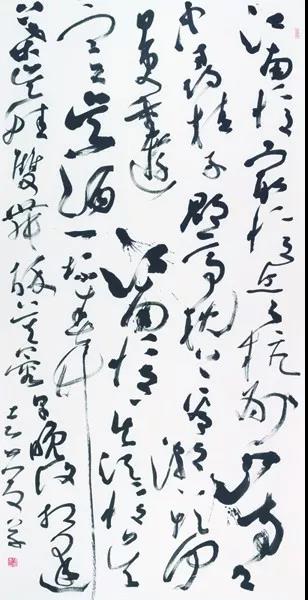 江南憶最憶是杭州山寺月
中尋桂子郡亭枕上看潮頭何
日更重遊江南憶其次憶吴
宫吴酒一杯春竹
葉吴娃雙舞醉芙蓉早晚復相逢